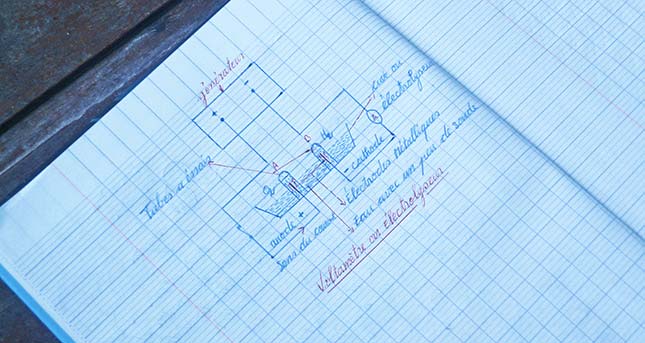 générateur
+ -
cuve ou
électrolyseur
A
Tubes à essais
A
B
O₂
H₂
- cathode
Électrodes métalliques
Eau avec un peu de soude
anode +
Sens du
Voltamètre ou électrolyseur